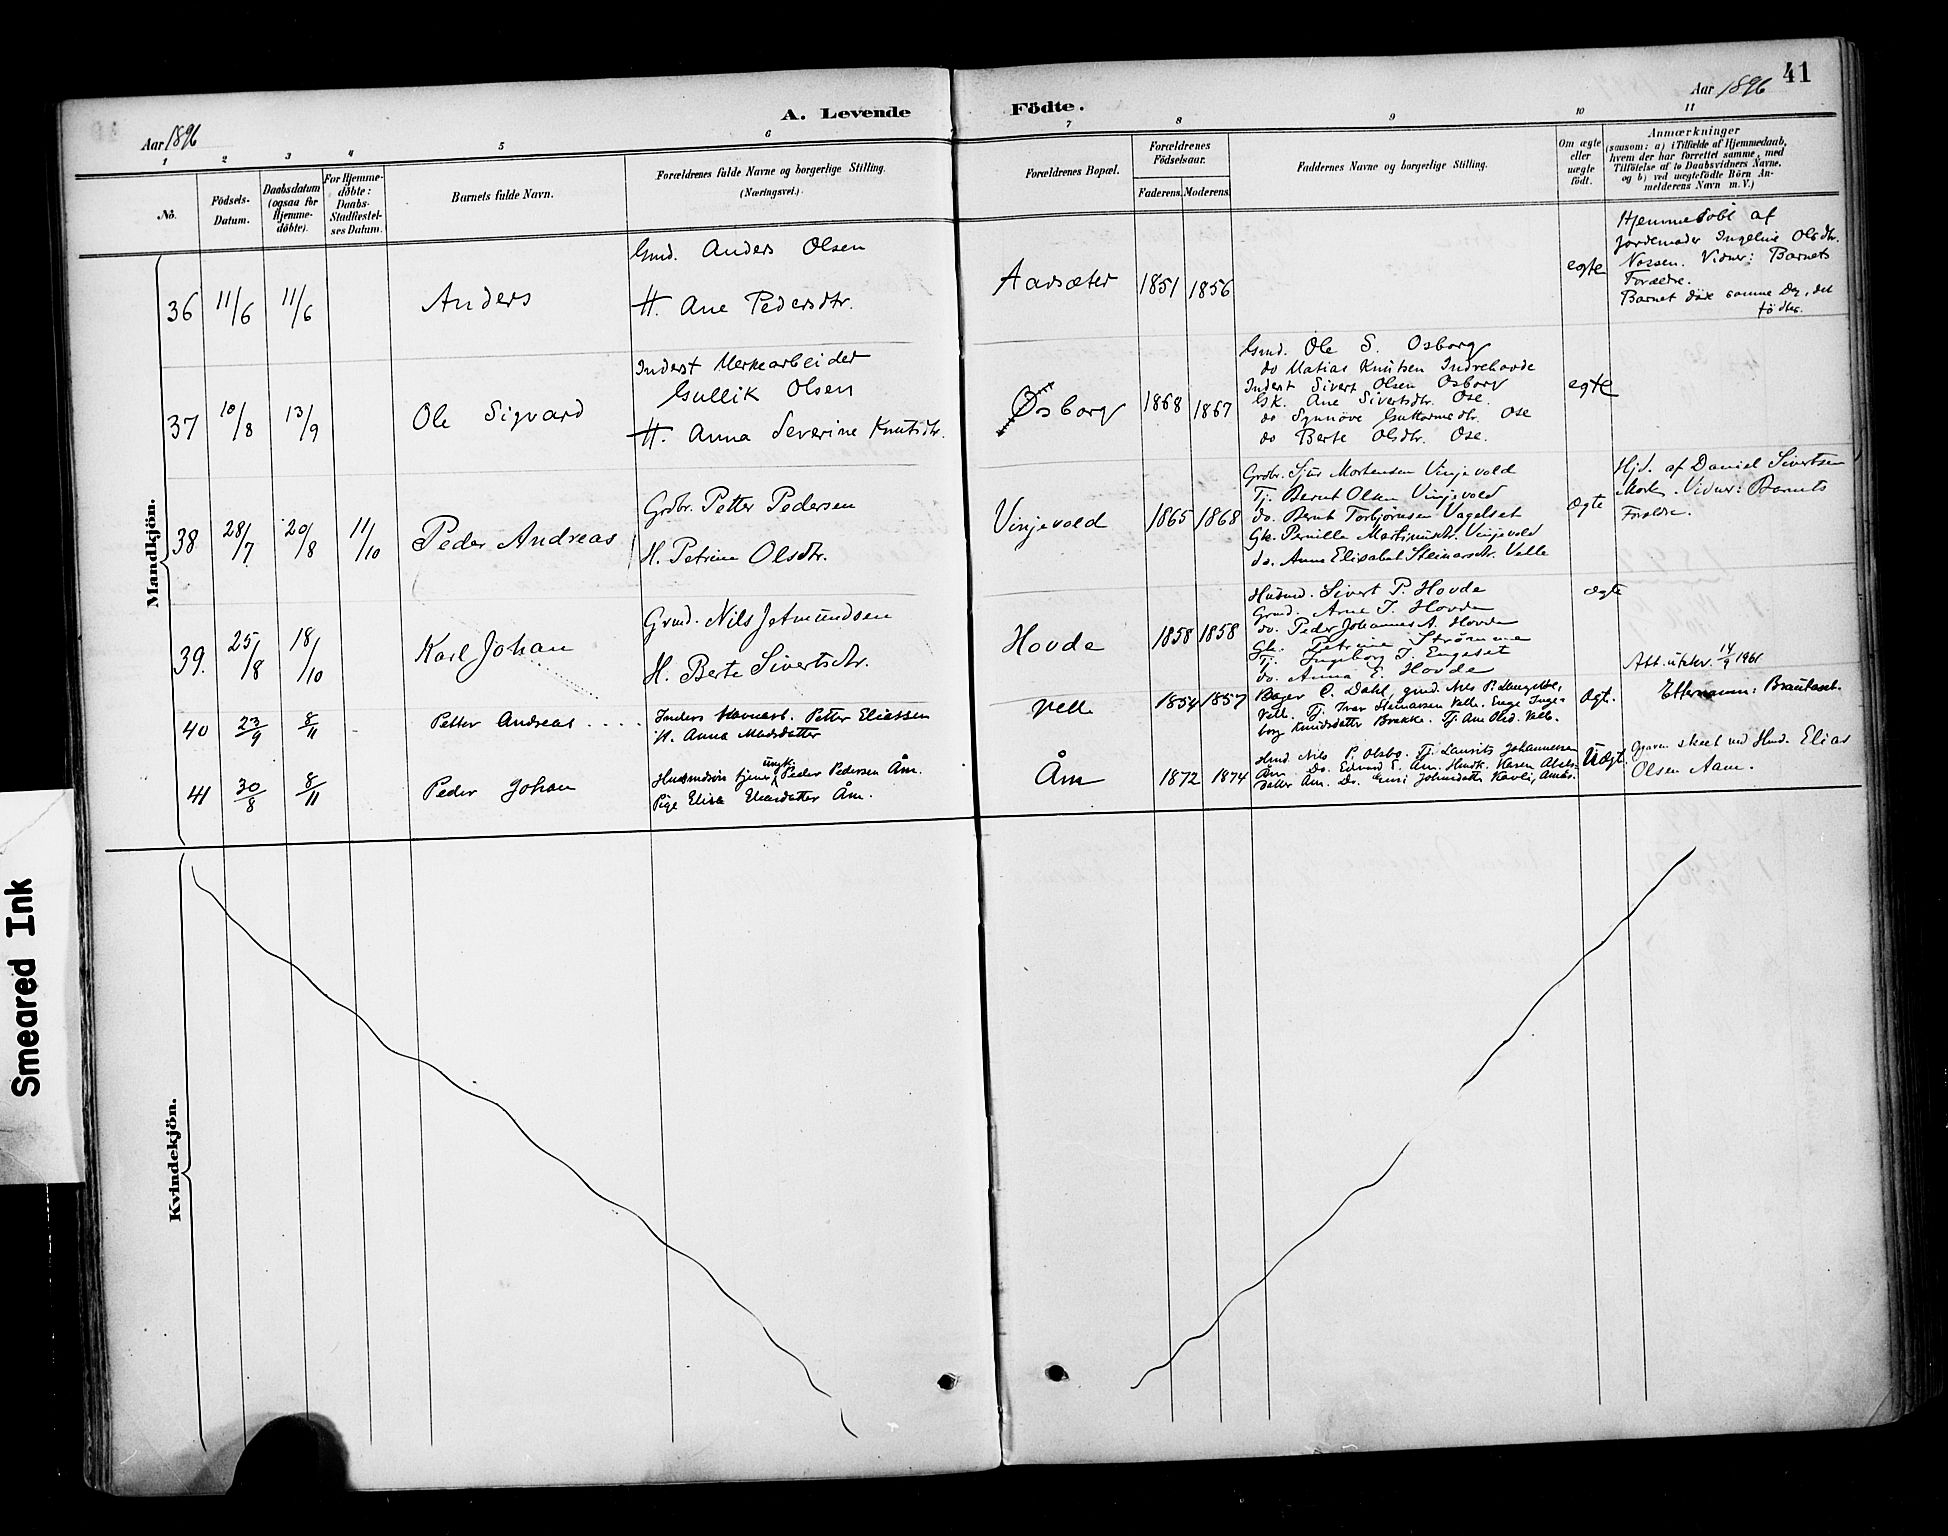 41
A. Levende Födte.
Aar 1896
Aar 1896
1 2 3 4 5 6 7 8 9 10 11
No.
Födsels-Datum.
Daabsdatum (ogsaa for Hjemme-döbte).
For Hjemme-döbte: Daabs-Stadfæstel-ses Datum.
Barnets fulde Navn.
Forældrenes fulde Navne og borgerlige Stilling.
(Næringsvei.)
Forældrenes Bopæl.
Forældrenes Födselsaar.
Faderens. Moderens.
Faddernes Navne og borgerlige Stilling.
Om ægte eller uægte födt.
Anmærkninger
(saasom: a) i Tilfælde af Hjemmedaab,
hvem der har forrettet samme, med
Tilföielse af to Daabsvidners Navne.
og b) ved uægtefödte Börn An-
melderens Navn m. V.)
Mandkjön.
36 11/6 11/6 Anders
Gmd. Anders Olsen
H. Ane Pedersdtr.
Aarsæter 1851 1856
egte
Hjemmedöbt af
Jordemoder Ingeline Olsdtr.
Vidner: Barnets
Forældre.
Barnet döde samme Dag, det
födtes.
37 10/8 13/9 Ole Sigvard
Inderst Merkearbeider
Gullik Olsen
H. Anna Severine Knutsdtr.
Øsborg 1868 1867
Gmd. Ole S. Osborg
do Matias Knutsen Indrehovde
Inderst Sivert Olsen Osborg
Gk. Ane Sivertsdtr. Ose.
do Synnöve Guttormsdtr. Ose
do Berte Olsdtr. Ose.
egte
38 28/7 20/8 11/10 Peder Andreas
Grdbr. Petter Pedersen
H. Petrine Olsdtr.
Vinjevold 1865 1868
Grdbr. Sjur Mortensen Vinjevold
Tj. Bernt Olsen Vinjevold
do. Bernt Torbjørnsen Vagelset
Gk. Pernille Martinusdtr. Vinjevold
do. Anne Elisabet Steinarsdtr. Velle
Ægte
Hjd. af Daniel Sivertsen
Mork. Vidner: Barnets
Foreldre.
39. 25/8 18/10 Karl Johan
Grmd. Nils Jetmundsen
H. Berte Sivertsdtr.
Hovde 1858 1858
Husmd. Sivert P. Hovde
Grmd. Arne I. Hovde
do. Peder Johannes A. Hovde
Gk. Petrine Strømme
Tj. Ingeborg I. Engeset
do. Anna E. Hovde
Ægte
Att. utskr. 14/9 1961
40 23/9 8/11 Petter Andreas
Inders Havnearb. Petter Eliassen
H. Anna Madsdatter
Velle 1854 1857
Bager C. Dahl, gmd. Nils P.
Velle. Tj. Ivar Steinarsen Velle. Enge Inge-
borg Knudsdatter Brekke. Tj. Ane Olsd. Velle.
Ægt.
Efternavn: Brautaset.
41 30/8 8/11 Peder Johan
Husmdsön tjener ungk. Peder Pedersen Åm.
Pige Elisa Eliasdatter Åm.
Åm 1872 1874
Hmd Nils P. Tj. Laurits Johannessen
Åm. Do. Edvard E. Åm. Hmdk. Karen
datter Åm. Do. Johnsdatter
Uægt.
Gaven skeet ved Hmd. Elias
Olsen Aam.
Kvindekjön.
Smeared Ink